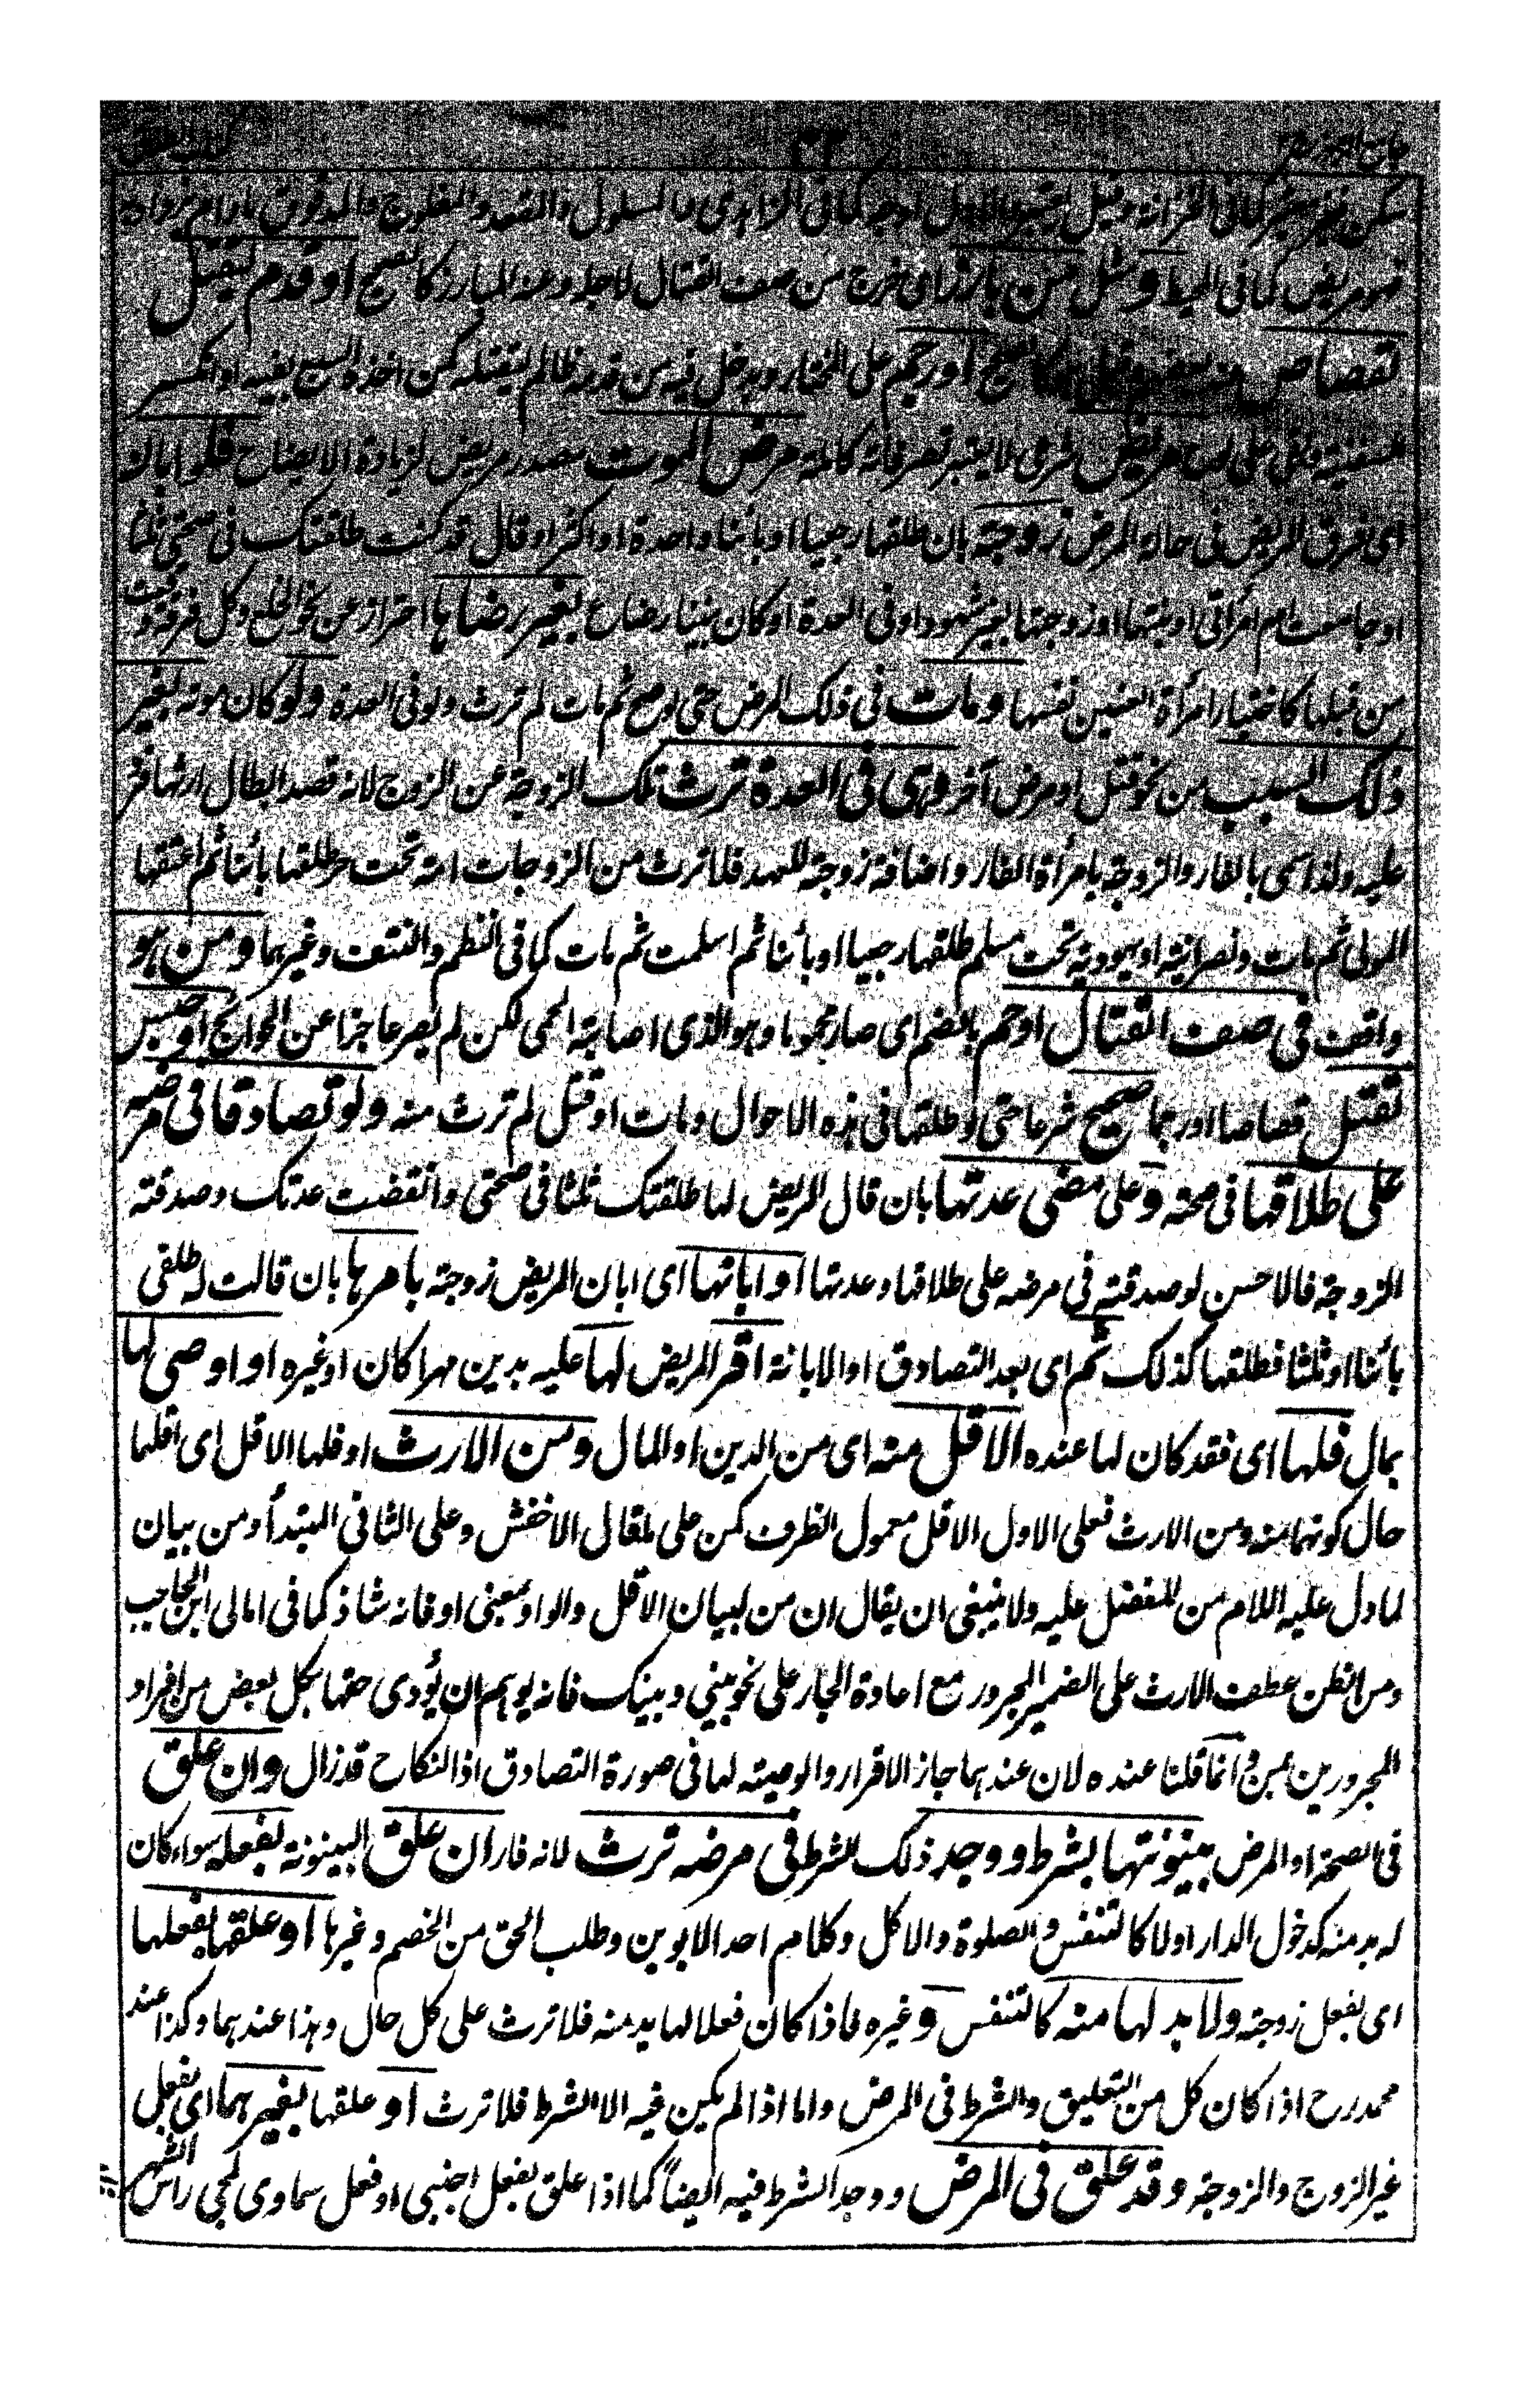 جامع الرموز
كتاب الطلاق
لم يكن كما فى الخزانة وقيل اوجه كما فى الزاهدى والمسلول والمقعد والمفلوج والمدقوق مادام يزداد
فهو مريض كما فى المحيط ومثل من بارز اى خرج من صف القتال لاجله وعنه المبارز كالصحيح او قدم ليقتل
لقصاص كالصحيح او رجم على المختار ويدخل فيه من قدمه ظالم ليقتله كمن اخذه السبع بفيه او انكسر
السفينة وبقى على لوح مريض شرعى لا يعتبر تصرفاته كاملة مرض الموت مصدر مريض لزيادة الايضاح فلو ابان
اى فرق المريض فى حالة المرض زوجته بان طلقها رجعيا او بائنا واحدة او اكثر او قال قد كنت طلقتك فى صحتى ثلثا
او جامعت ام امرأتى او بنتها او تزوجتها بغير شهود او فى العدة او كان بيننا رضاع بغير رضاها احتراز عن نحو الخلع وكل فرقة وقعت
من قبلها كاختيار امرأة العنين نفسها ومات فى ذلك المرض حتى لو صح ثم مات لم ترث ولو فى العدة ولو كان موته بغير
ذلك السبب من نحو قتل او مرض آخر وهى فى العدة ترث تلك الزوجة عن الزوج لانه قصد ابطال ارثها فرد
عليه ولذا سمى بالفار والزوجة بامرأة الفار واضافة زوجته للعهد فلا ترث من الزوجات امة تحت حر طلقها بائنا ثم اعتقها
المولى ثم مات ونصرانية او يهودية تحت مسلم طلقها رجعيا او بائنا ثم اسلمت ثم مات كما فى النظم والنتف وغيرهما ومن هو
واقف فى صف القتال او حم بالضم اى صار محموما وهو الذى اصابته الحمى لكن لم يصر عاجزا عن الحوائج او حبس
لقتل قصاصا او رجما صحيح شرعا حتى لو طلقها فى هذه الاحوال ومات او قتل لم ترث منه ولو تصادقا فى مرضه
على طلاقها فى صحته وعلى مضى عدتها بان قال المريض لها طلقتك ثلثا فى صحتى وانقضت عدتك وصدقته
الزوجة فالاحسن لو صدقته فى مرضه على طلاقها وعدتها او ابانها اى ابان المريض زوجته بامرها بان قالت له طلقنى
بائنا او ثلثا فطلقها كذلك ثم اى بعد التصادق او الابانة اقر المريض لها عليه بدين مهرا كان او غيره او اوصى لها
بمال فلها اى فقد كان لها عنده الاقل منه اى من الدين او المال ومن الارث او فلها الاقل اى اقلها
حال كونهما منه ومن الارث فعلى الاول الاقل معمول الظرف كمن على ما قال الاخفش وعلى الثانى المبتدأ ومن بيان
لما دل عليه اللام من المفضل عليه ولا ينبغى ان يقال ان من لبيان الاقل والواو بمعنى او فانه شاذ كما فى امالى ابن الحاجب
ومن الظن عطف الارث على الضمير المجرور مع اعادة الجار على نحو بينى وبينك فانه يوهم ان يؤدى حقها بكل بعض من افراد
المجرورين بمن وانما قلنا عنده لان عندهما جاز الاقرار والوصية لها فى صورة التصادق اذ النكاح قد زال وان علق
فى الصحة او المرض بينونتها بشرط ووجد ذلك الشرط فى مرضه ترث لانه فار ان علق البينونة بفعله سواء كان
له بد منه كدخول الدار او لا كالتنفس والصلوة والاكل وكلام احد الابوين وطلب الحق من الخصم وغيرها او علقها بفعلها
اى بفعل زوجته ولا بد لها منه كالتنفس وغيره فاذا كان فعلا لها بد منه فلا ترث على كل حال وهذا عندهما وكذا عند
محمد رح اذا كان كل من التعليق والشرط فى المرض واما اذا لم يكن فيه الا الشرط فلا ترث او علقها بغيرهما اى بفعل
غير الزوج والزوجة وقد علق فى المرض ووجد الشرط فيه ايضاً كما اذا علق بفعل اجنبى او فعل سماوى كمجى راس الشهر